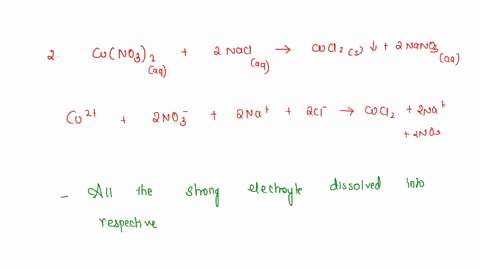 2. Cu(NO3)2 (aq) + 2 NaCl (aq) → CuCl2 (s) ↓ + 2 NaNO3 (aq)
Cu2+ + 2NO3- + 2Na+ + 2Cl- → CuCl2 + 2Na+
+ 2NO3
- All the strong electroyte dissolved into
respective